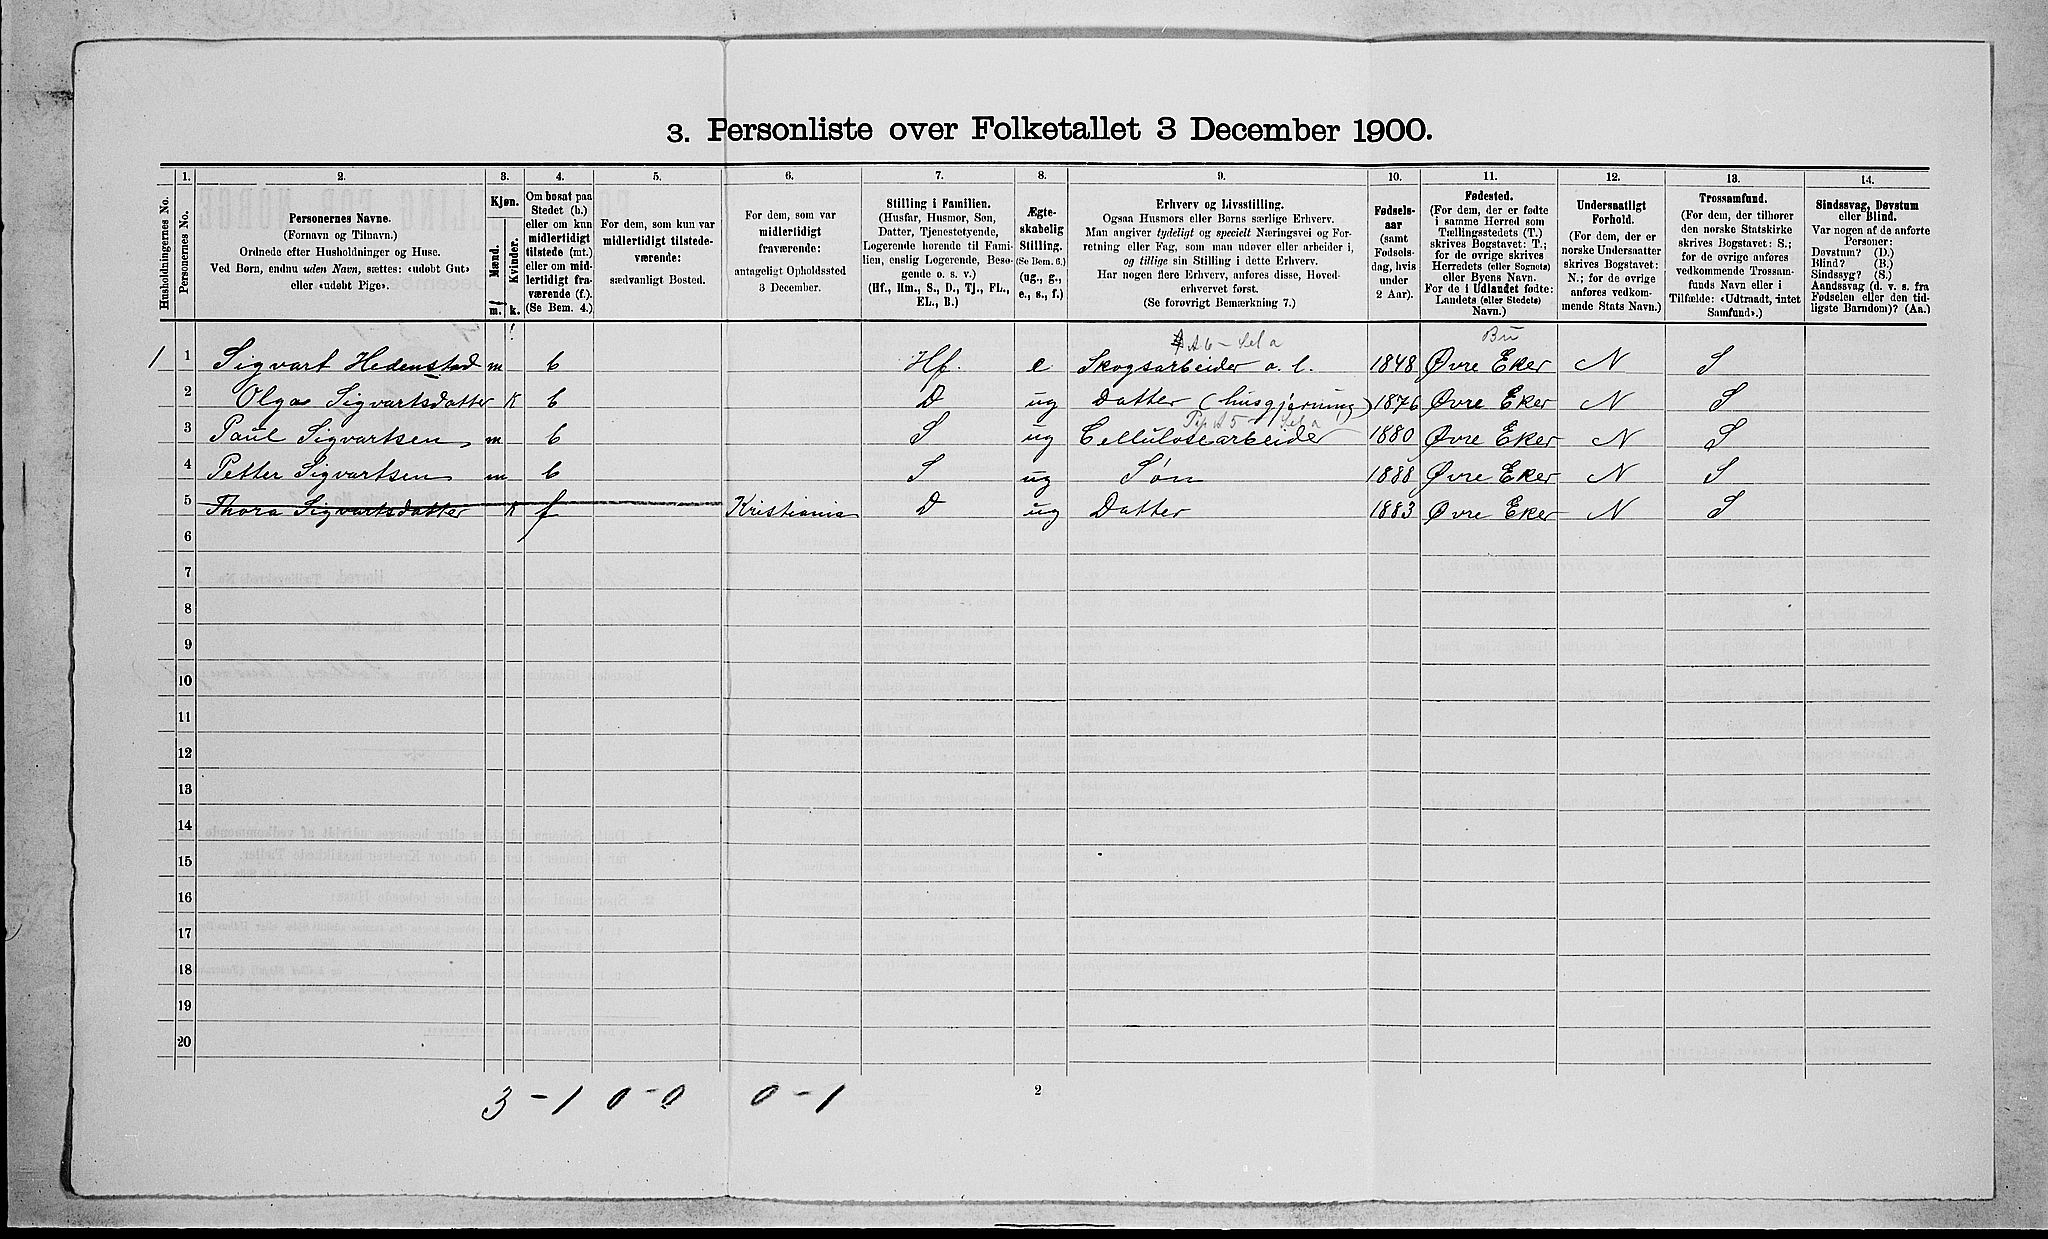 3. Personliste over Folketallet 3 December 1900.
1. 2. 3. 4. 5. 6. 7. 8. 9. 10. 11. 12. 13. 14.
Husholdningernes No.
Personernes No.
Personernes Navne.
(Fornavn og Tilnavn.)
Ordnede efter Husholdninger og Huse.
Ved Børn, endnu uden Navn, sættes: «udøbt Gut»
eller «udøbt Pige».
Kjøn.
Mænd.
Kvinder.
m. k.
Om bosat paa
Stedet (b.)
eller om kun
midlertidigt
tilstede (mt.)
eller om mid-
lertidigt fra-
værende (f.).
(Se Bem. 4.)
For dem, som kun var
midlertidigt tilstede-
værende:
sædvanligt Bosted.
For dem, som var
midlertidigt
fraværende:
antageligt Opholdssted
3 December.
Stilling i Familien.
(Husfar, Husmor, Søn,
Datter, Tjenestetyende,
Logerende hørende til Fami-
lien, enslig Logerende, Besø-
gende o. s. v.)
(Hf., Hm., S., D., Tj., FL.,
EL., B.)
Ægte-
skabelig
Stilling.
(Se Bem. 6.)
(ug., g.,
e., s., f.)
Erhverv og Livsstilling.
Ogsaa Husmors eller Børns særlige Erhverv.
Man angiver tydeligt og specielt Næringsvei og For-
retning eller Fag, som man udøver eller arbeider i,
og tillige sin Stilling i dette Erhverv.
Har nogen flere Erhverv, anføres disse, Hoved-
erhvervet først.
(Se forøvrigt Bemærkning 7.)
Fødsels-
aar
(samt
Fødsels-
dag, hvis
under
2 Aar).
Fødested.
(For dem, der er fødte
i samme Herred som
Tællingsstedets (T.)
skrives Bogstavet: T.;
for de øvrige skrives
Herredets (eller Sognets)
eller Byens Navn.
For de i Udlandet fødte:
Landets (eller Stedets)
Navn.)
Undersaatligt
Forhold.
(For dem, der er
norske Undersaatter
skrives Bogstavet:
N.; for de øvrige
anføres vedkom-
mende Stats Navn.)
Trossamfund.
(For dem, der tilhører
den norske Statskirke
skrives Bogstavet: S.;
for de øvrige anføres
vedkommende Trossam-
funds Navn eller i
Tilfælde: «Udtraadt, intet
Samfund».)
Sindssvag, Døvstum
eller Blind.
Var nogen af de anførte
Personer:
Døvstum? (D.)
Blind? (B.)
Sindssyg? (S.)
Aandssvag (d. v. s. fra
Fødselen eller den tid-
ligste Barndom)? (Aa.)
1 1 Sigvart Hedenstad m b Hf. e Skogsarbeider o. l. 1848 Øvre Eker N S
2 Olga Sigvartsdatter K b D ug Datter (husgjerning) 1876 Øvre Eker N S
3 Paul Sigvartsen m b S ug Cellulosearbeider 1880 Øvre Eker N S
4 Petter Sigvartsen m b S ug Søn 1888 Øvre Eker N S
5 Thora Sigvartsdatter K f Kristiania D ug Datter 1883 Øvre Eker N S
6
7
8
9
10
11
12
13
14
15
16
17
18
19
20
3 - 1 0 - 0 0 - 1 2